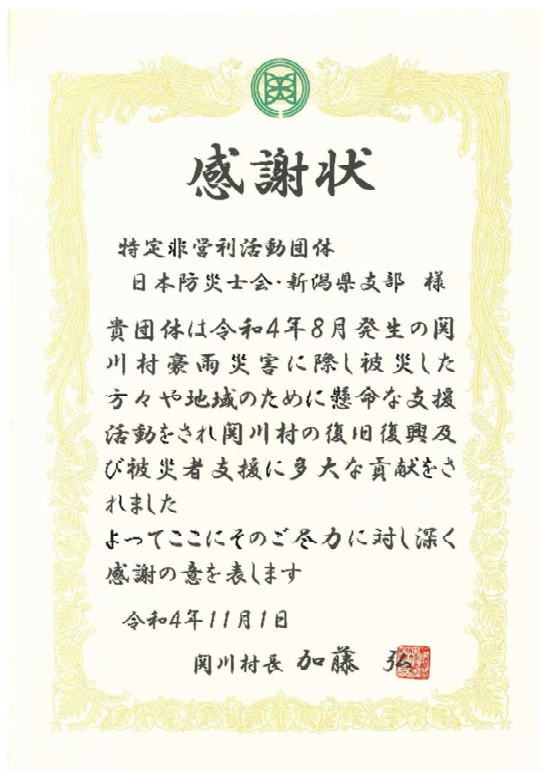 感謝状
特定非営利活動団体
日本防災士会・新潟県支部 様
貴団体は令和4年8月発生の関
川村豪雨災害に際し被災した
方々や地域のために懸命な支援
活動をされ関川村の復旧復興及
び被災者支援に多大な貢献をさ
れました
よってここにそのご尽力に対し深く
感謝の意を表します
令和4年11月1日
関川村長 加藤 弘